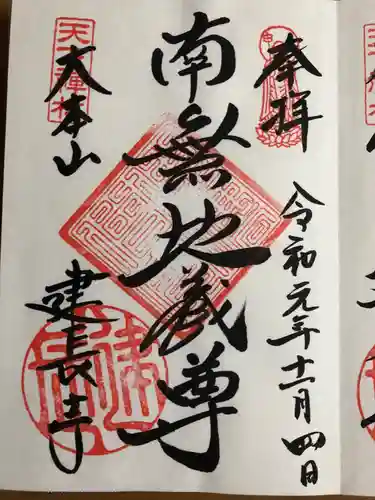 奉拝
令和元年十一月四日
南無地蔵尊
天下禅林
大本山
建長寺